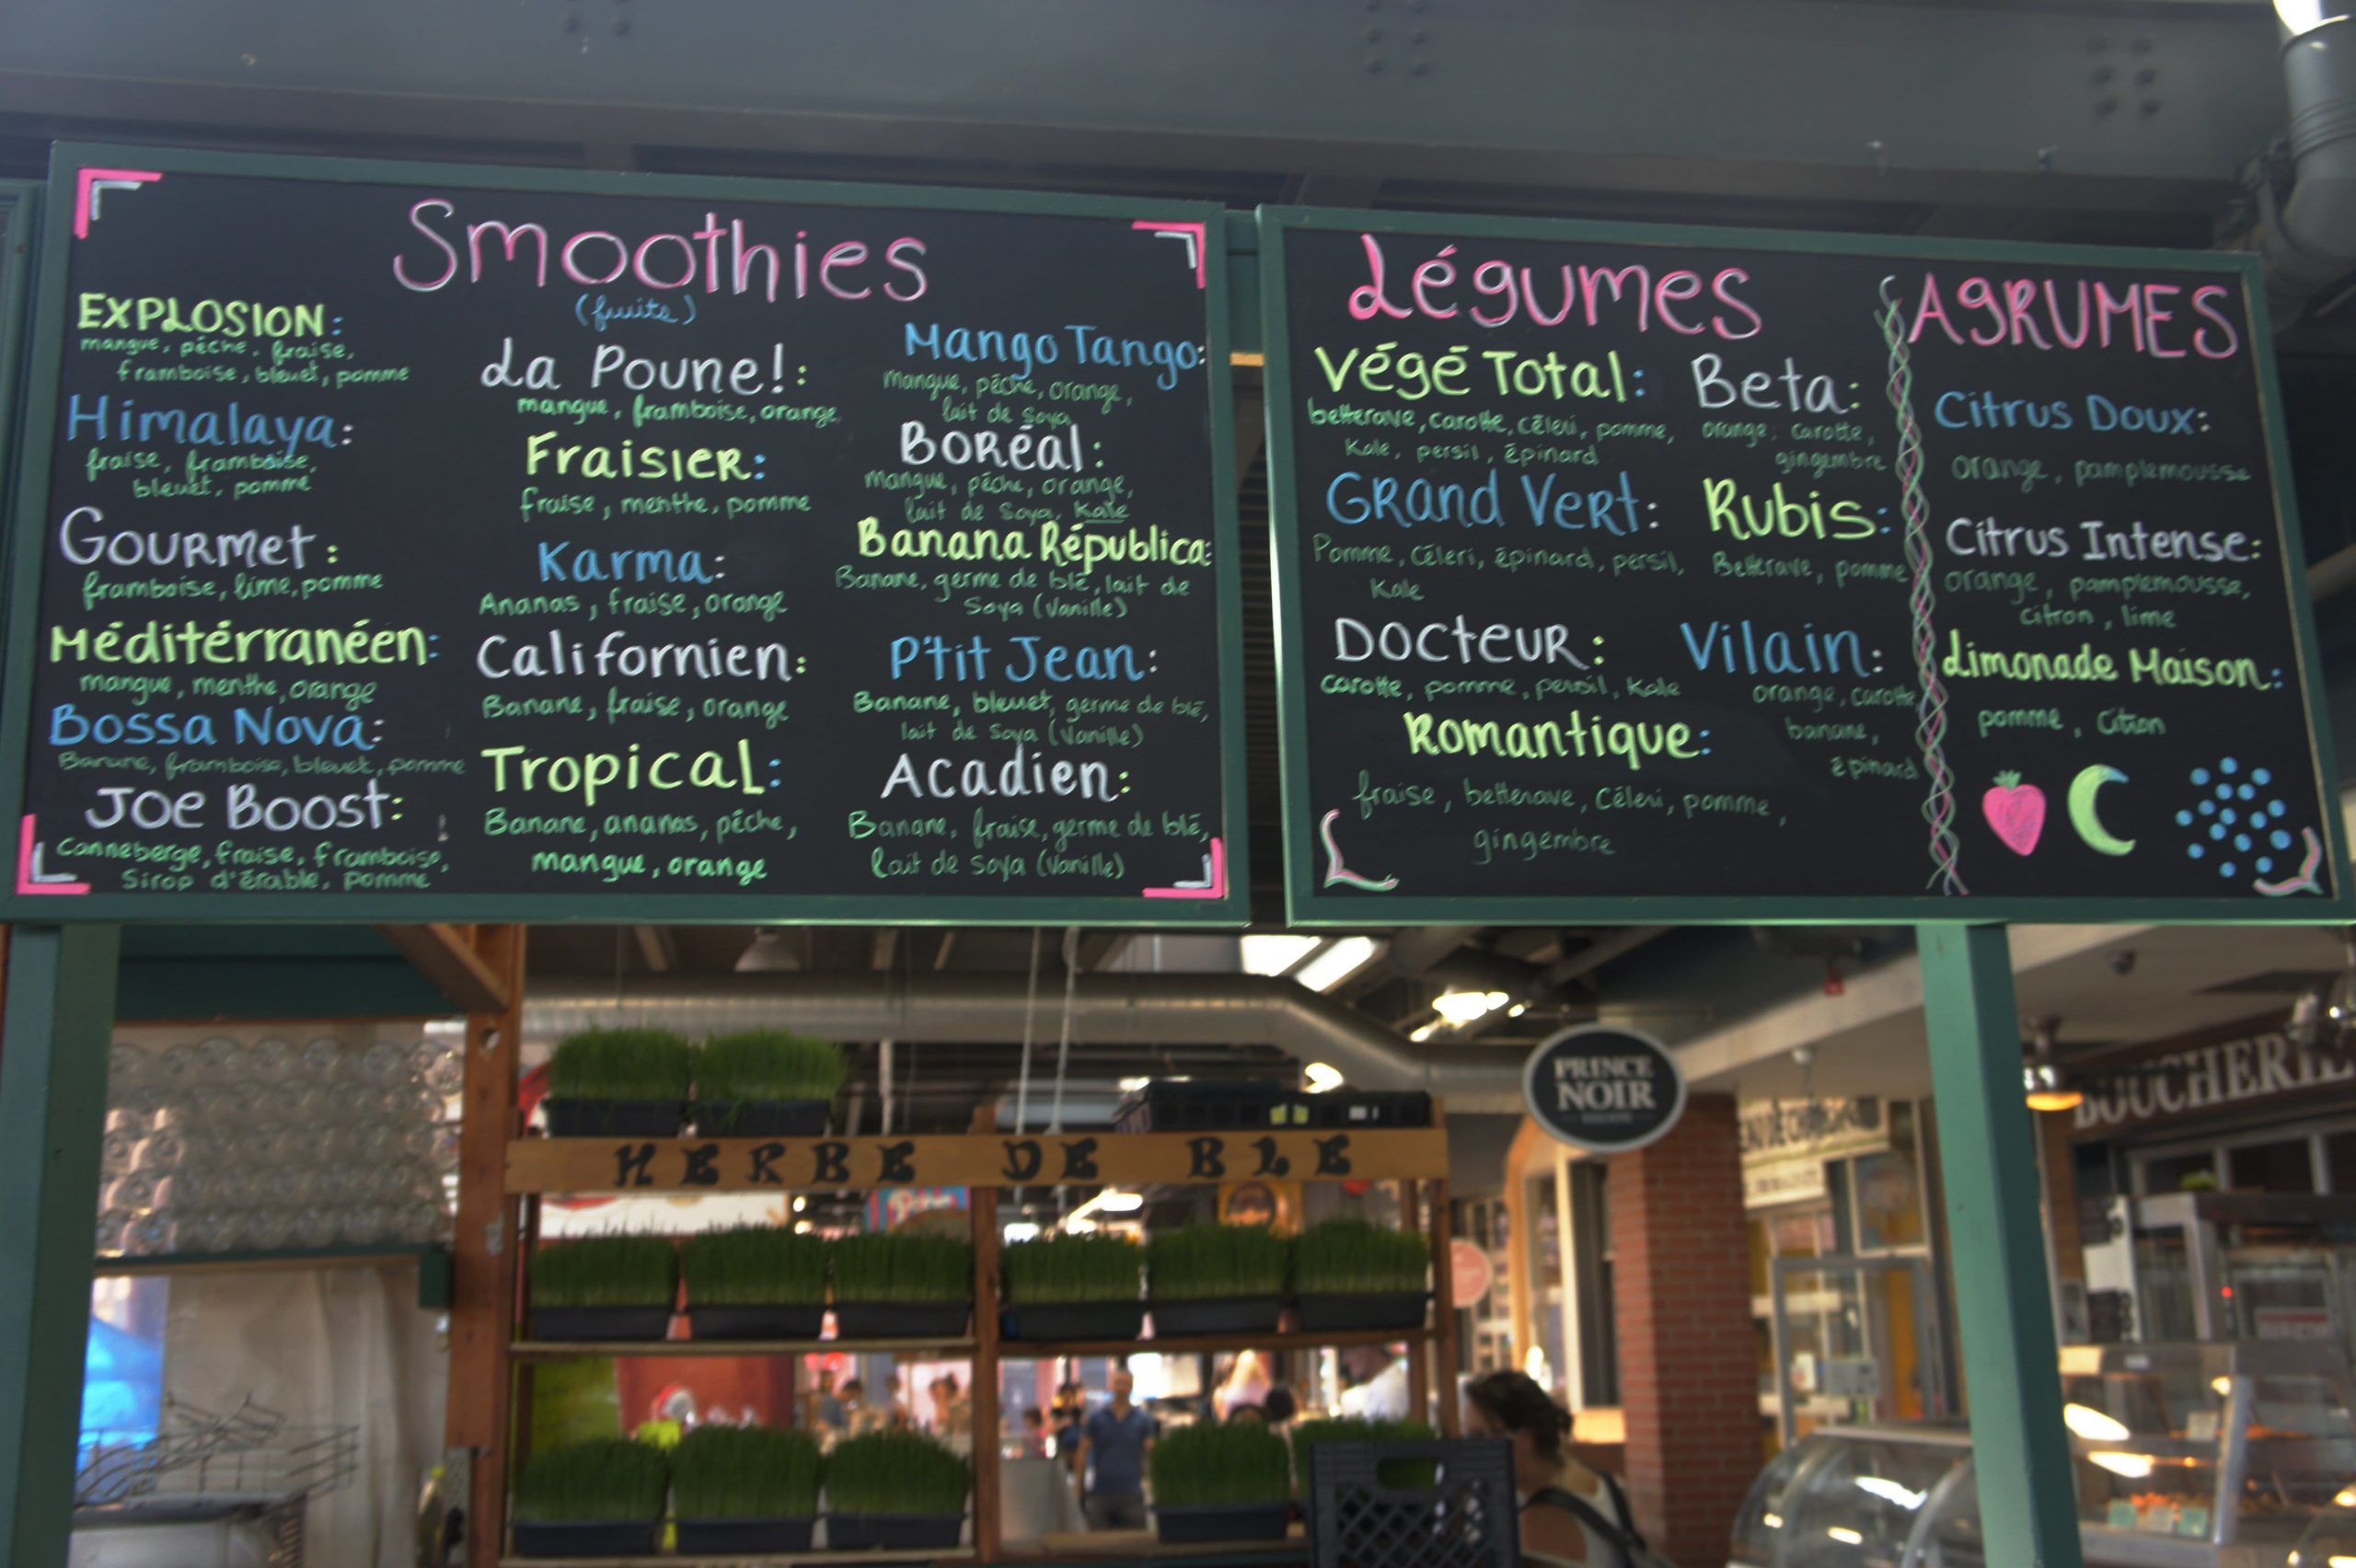 Smoothies
(fruits)
EXPLOSION:
mangue, pêche, fraise,
framboise, bleuet, pomme
Himalaya:
fraise, framboise,
bleuet, pomme
Gourmet:
framboise, lime, pomme
Méditérranéen:
mangue, menthe, orange
Bossa Nova:
Banane, framboise, bleuet, pomme
Joe Boost:
Canneberge, fraise, framboise,
Sirop d'érable, pomme
La Poune!:
mangue, framboise, orange
Fraisier:
fraise, menthe, pomme
Karma:
Ananas, fraise, orange
Californien:
Banane, fraise, orange
Tropical:
Banane, ananas, pêche,
mangue, orange
Mango Tango:
Mangue, pêche, orange,
lait de soya
Boréal:
Mangue, pêche, orange,
lait de Soya, Kale
Banana Républica:
Banane, germe de blé, lait de
Soya (Vanille)
P'tit Jean:
Banane, bleuet, germe de blé,
lait de Soya (Vanille)
Acadien:
Banane, fraise, germe de blé,
lait de soya (Vanille)
Légumes
Végé Total:
betterave, carotte, céleri, pomme,
Kale, persil, épinard
Grand Vert:
Pomme, Céleri, épinard, persil,
Kale
Docteur:
carotte, pomme, persil, Kale
Romantique:
fraise, betterave, Céleri, pomme,
gingembre
Beta:
orange, carotte,
gingembre
Rubis:
Betterave, pomme
Vilain:
orange, carotte
banane,
épinard
AGRUMES
Citrus Doux:
orange, pamplemousse
Citrus Intense:
orange, pamplemousse,
citron, lime
Limonade Maison:
pomme, Citron
HERBE DE BLE
PRINCE
NOIR
BOUCHERIE